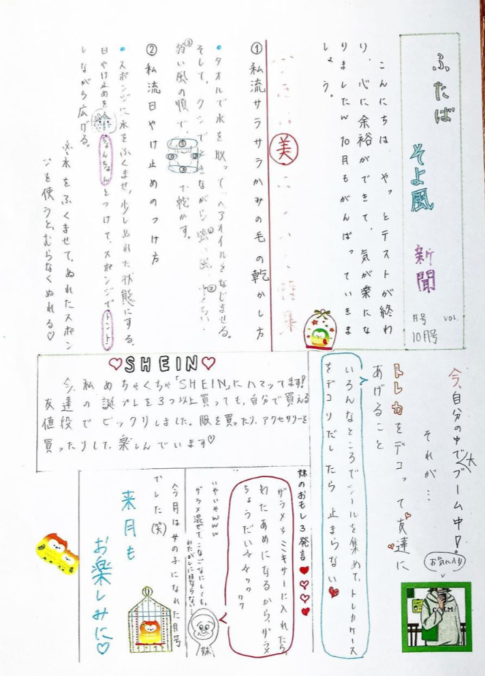 ふたば
そよ風
新聞
10月号
VOL.
こんにちは。やっとテストが終わ
り、心に余裕ができて、気が楽にな
りましたw10月もがんばっていきま
しょう。
美
①私流サラサラかみの毛の乾かし方
・タオルで水を取ってヘアオイルをなじませる。
そして、クシで
冷い風の順で
で乾かす。
②私流日やけ止めのつけ方
・スポンジに水をふくませ、少しぬれた状態にする。
日やけ止めを
ちょんちょんとつけて、スポンジでトントン
しながら広げる。
※水をふくませて、ぬれたスポン
ジを使うと、むらなくぬれる♡
今、自分の中で大ブーム中!
それが…
トレカをデコって友達に
あげること
お気に入り
いろんなところでシールを集めて、トレカケース
をデコりだしたら止まらない♥
♡SHEIN♡
今、私めちゃくちゃ「SHEIN」にハマってます!
友達の誕プレを3つ以上買っても、自分で買える
値段でビックリしました。服を買ったり、アクセサリーを
買ったりして、楽しんでいます♡
妹のおもしろ発言♥♥♥♥
ザラメをミキサーに入れたら、
わたあめになるから、ザラメ
ちょうだい
妹
いやいやwww
ザラメ混ぜて、こなごなにしても、
わたがしにはならない
今月は女の子になれた月号
でした(笑)
来月も
お楽しみに♡